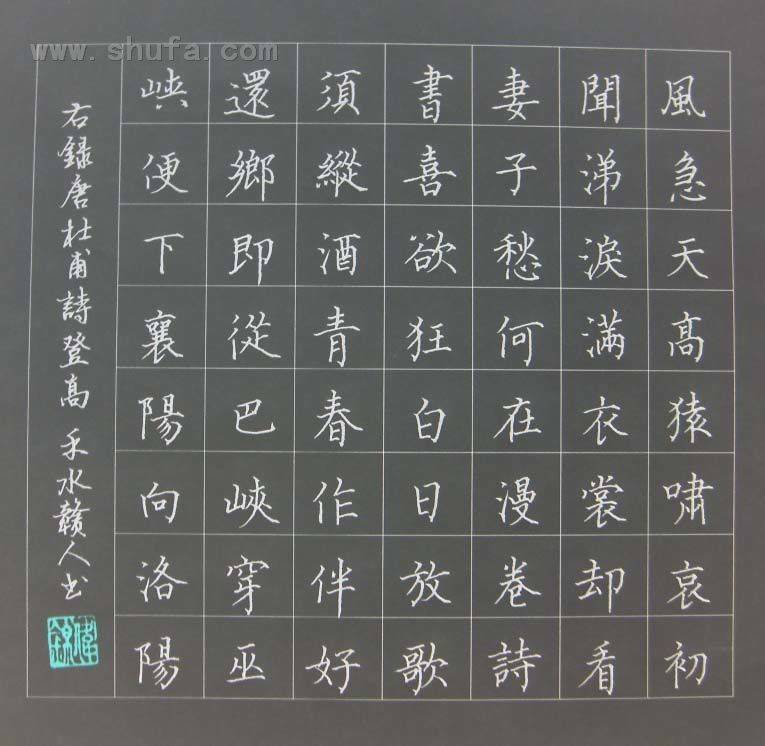 www.shufa.com
風急天髙猿嘯哀初
聞涕淚滿衣裳却看
妻子愁何在漫卷詩
書喜欲狂白日放歌
須縱酒青春作伴好
還鄉即從巴峽穿巫
峽便下襄陽向洛陽
右録唐杜甫詩登髙 禾水贛人书